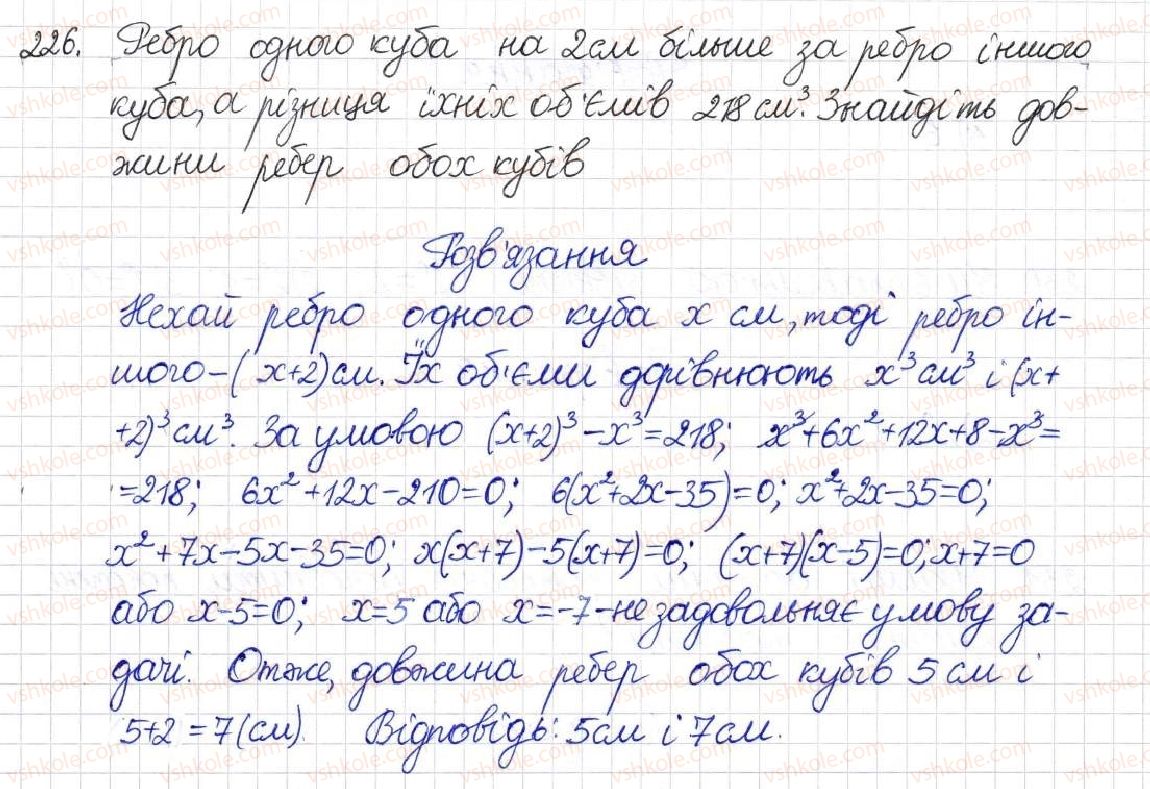 226. Ребро одного куба на 2см більше за ребро іншого
куба, а різниця їхніх об'ємів 218 см³. Знайдіть дов-
жини ребер обох кубів
Розв'язання
Нехай ребро одного куба x см, тоді ребро ін-
шого – (x+2) см. Їх об'єми дорівнюють x³ см³ і (x+
+2)³ см³. За умовою (x+2)³ – x³ = 218; x³+6x²+12x+8–x³=
=218; 6x²+12x–210=0; 6(x²+2x–35)=0; x²+2x–35=0;
x²+7x–5x–35=0; x(x+7)–5(x+7)=0; (x+7)(x–5)=0; x+7=0
або x–5=0; x=5 або x=–7 – не задовольняє умову за-
дачі. Отже, довжина ребер обох кубів 5 см і
5+2=7(см). Відповідь: 5см і 7см.